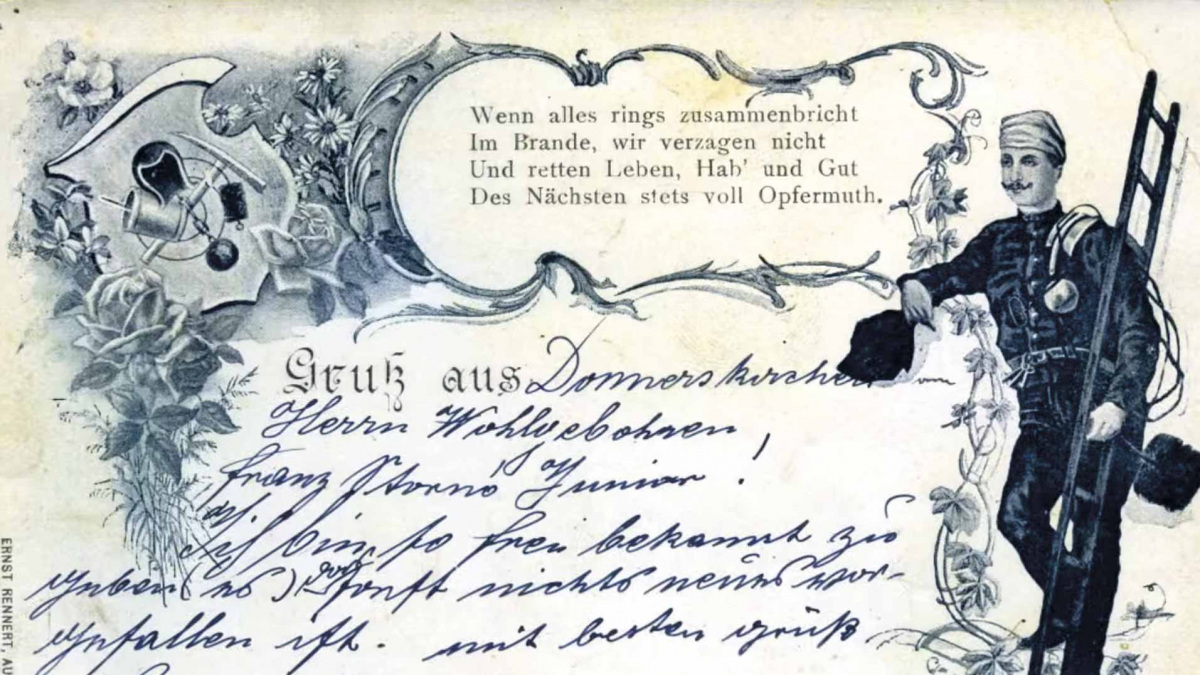 Wenn alles rings zusammenbricht
Im Brande, wir verzagen nicht
Und retten Leben, Hab' und Gut
Des Nächsten stets voll Opfermuth.
Gruß aus Donnerskirchen am
Herrn Wohlgebohren,
Franz Storno Junior!
Ich bin so frei bekannt zu
geben sonst nichts neues vor-
gefallen ist. mit besten grüß
ERNST RENNERT, AU